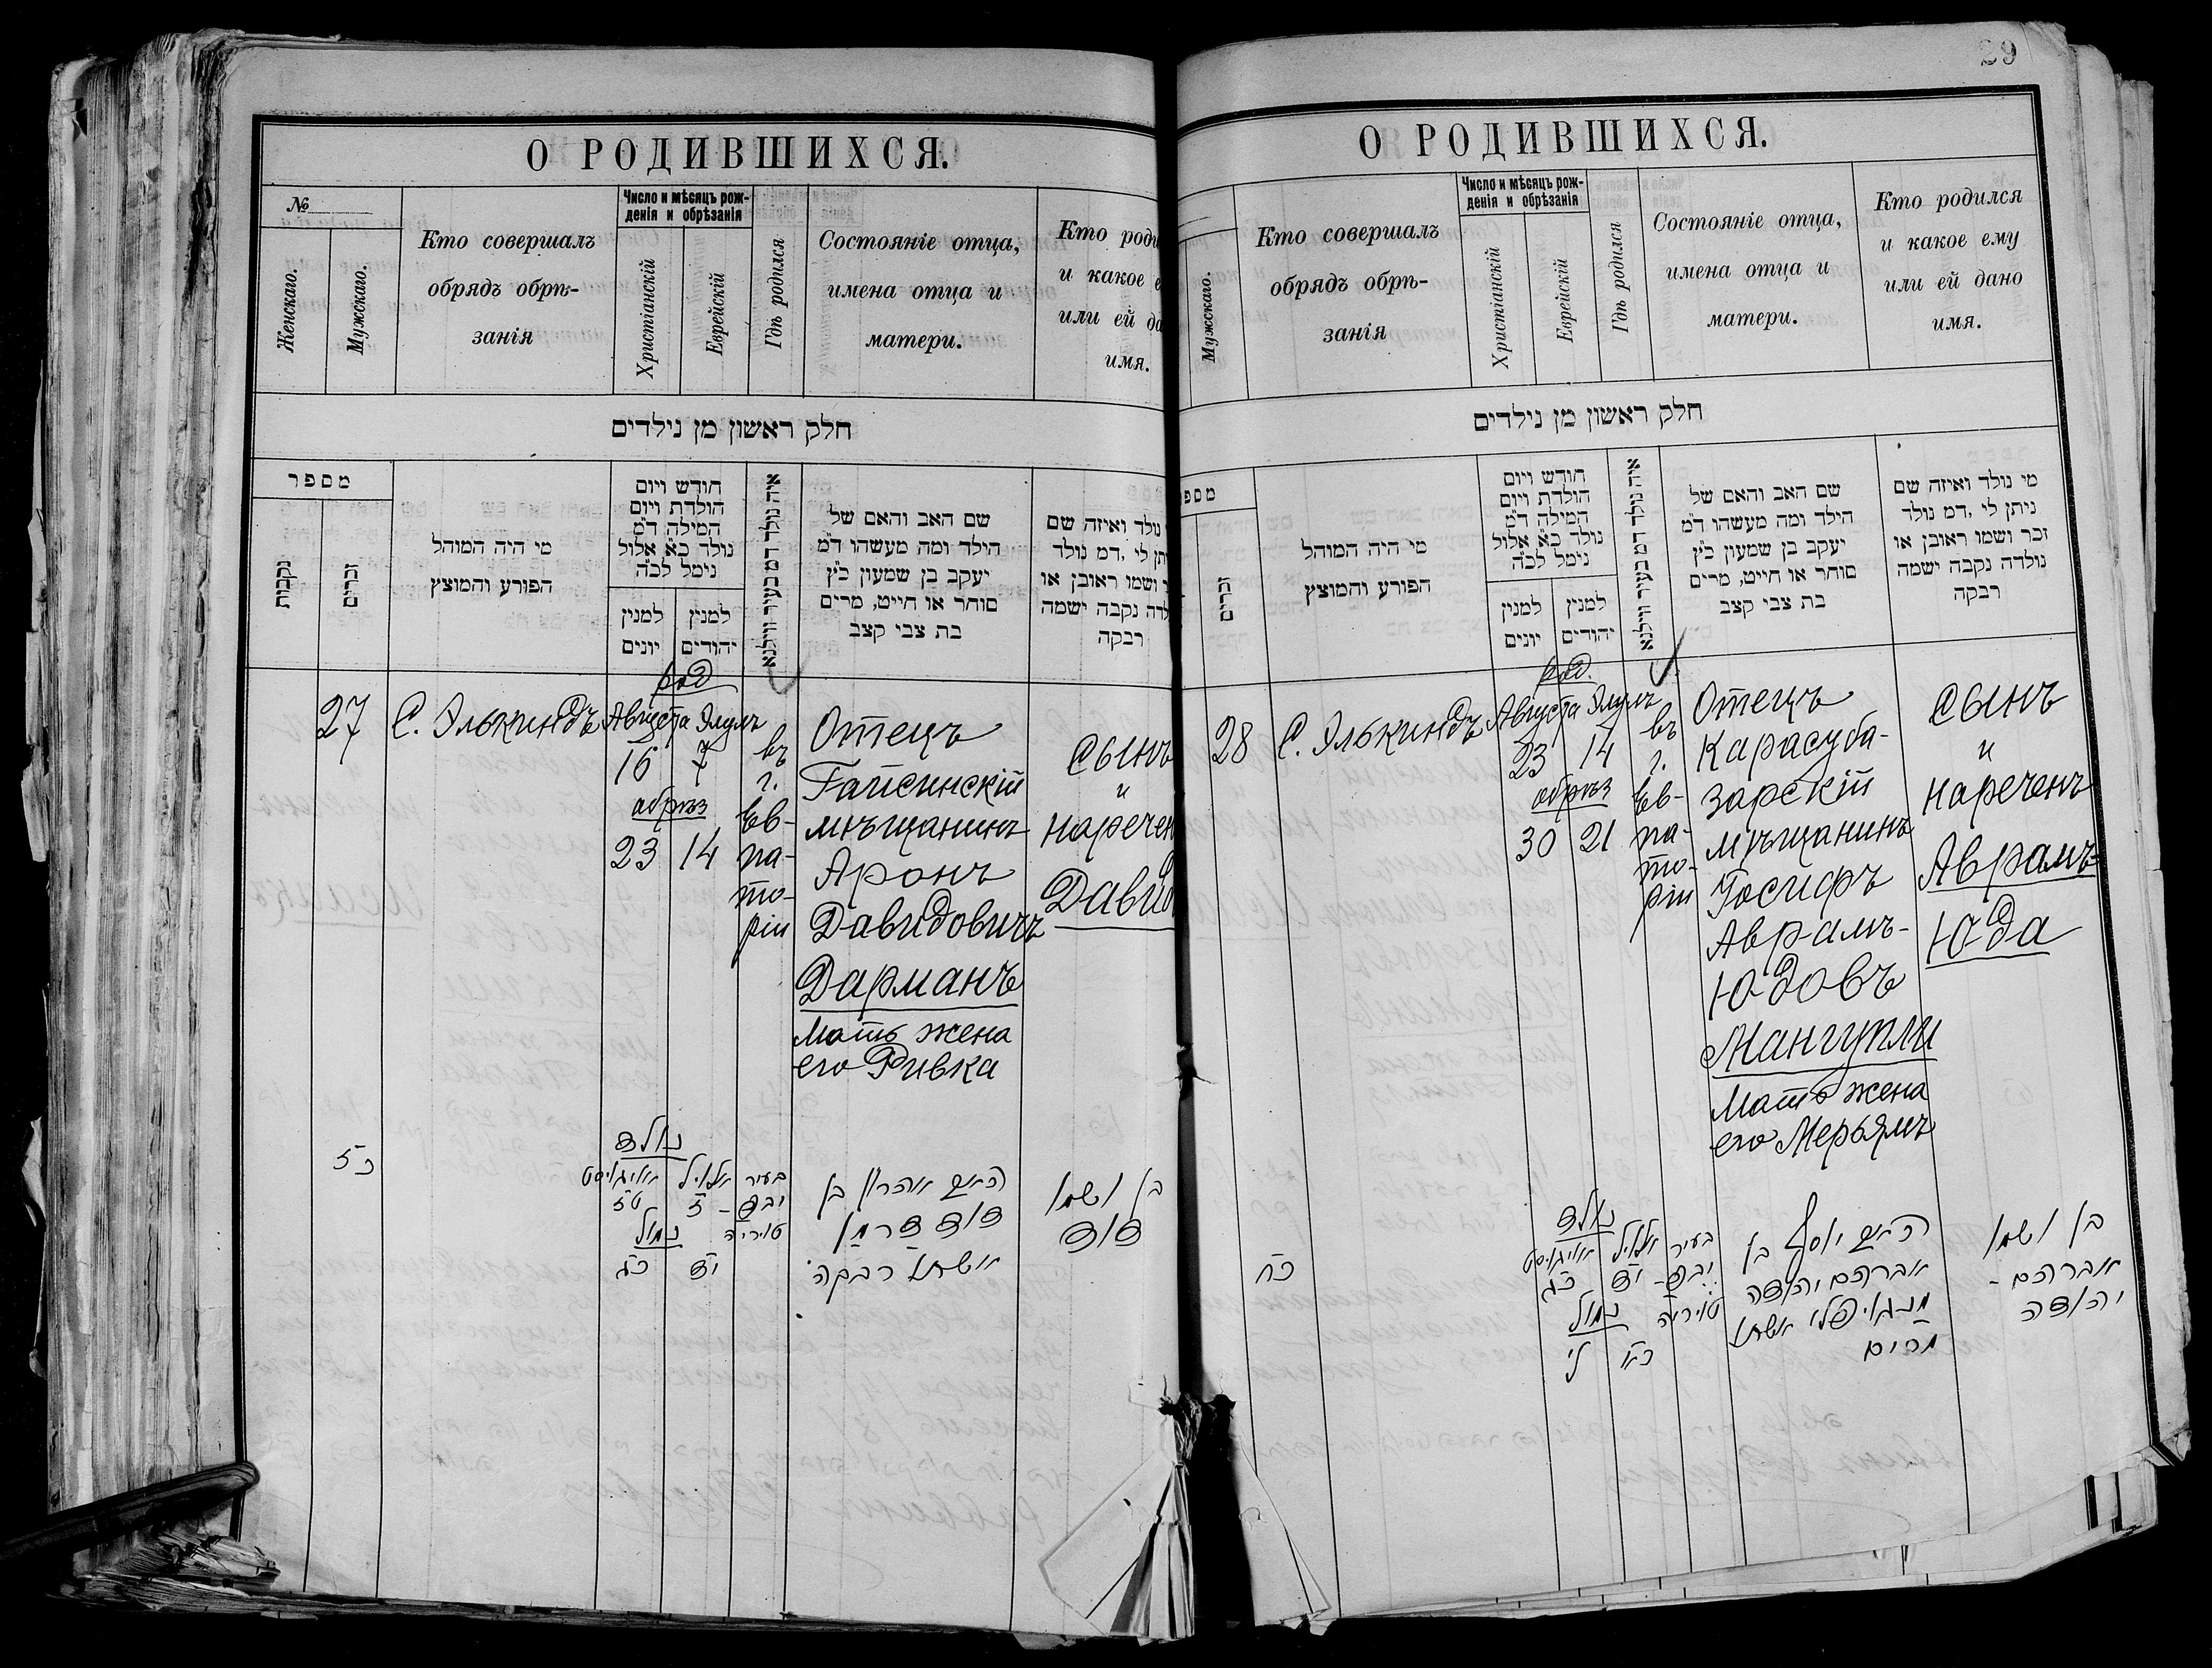 О РОДИВШИХСЯ.
№
Женскаго.
Мужскаго.
Кто совершалъ
обрядъ обрѣ-
занія
Число и мѣсяцъ рож-
денія и обрѣзанія
Христіанскій
Еврейскій
Гдѣ родился
Состояніе отца,
имена отца и
матери.
Кто роди
и какое е
или ей да
имя.
חלק ראשון מן נילדים
מספר
נקבות
זכרים
מי היה המוהל
הפורע והמוצץ
חודש ויום
הולדת ויום
המילה ד״מ
נולד כ״א אלול
נימל לכ״ה
למנין
יונים
למנין
יהודים
איה נולד דמ בעיר ווילנא
שם האב והאם של
הילד ומה מעשהו ד״מ
יעקב בן שמעון כ״ץ
סוחר או חייט, מרים
בת צבי קצב
נולד ואיזה שם
תן לי, דמ נולד
ר ושמו ראובן או
לדה נקבה ישמה
רבקה
27
С. Элькиндъ
род
Августа Элулъ
16 7
обрѣз
23 14
въ
г.
Ев-
па-
то-
ріи
Отецъ
Гайсинскій
мѣщанинъ
Аронъ
Давидовичъ
Дарманъ
Мать жена
его Ривка
сынъ
и
наречен
Давид
כ״ז
נולד
אויגוסט אלול
ט״ז ז
נמול
כ״ג י״ד
בעיר
יבפ-
טוריה
האב אהרון בן
דוד דרמן
אשתו רבקה
בן ושמו
דוד
29
О РОДИВШИХСЯ.
Мужскаго.
Кто совершалъ
обрядъ обрѣ-
занія
Число и мѣсяцъ рож-
денія и обрѣзанія
Христіанскій
Еврейскій
Гдѣ родился
Состояніе отца,
имена отца и
матери.
Кто родился
и какое ему
или ей дано
имя.
חלק ראשון מן נילדים
מספ
זכרים
מי היה המוהל
הפורע והמוצץ
חודש ויום
הולדת ויום
המילה ד״מ
נולד כ״א אלול
נימל לכ״ה
למנין
יונים
למנין
יהודים
איה נולד דמ בעיר ווילנא
שם האב והאם של
הילד ומה מעשהו ד״מ
יעקב בן שמעון כ״ץ
סוחר או חייט, מרים
בת צבי קצב
מי נולד ואיזה שם
ניתן לי, דמ נולד
זכר ושמו ראובן או
נולדה נקבה ישמה
רבקה
28
С. Элькиндъ
род.
Августа Элулъ
23 14
обрѣз
30 21
въ
г.
Ев-
па-
то-
ріи
Отецъ
Карасуба-
зарскій
мѣщанинъ
Іосифъ
Аврамъ-
Юдовъ
Мангупли
Мать жена
его Мерьямъ
сынъ
и
нареченъ
Аврамъ-
Юда
כ״ח
נולד
אויגוסט אלול
כ״ג י״ד
נמול
ל׳ כ״א
בעיר
יבפ-
טוריה
האב יוסף בן
אברהם יהודה
מנגופלי אשתו
מרים
בן ושמו
אברהם-
יהודה